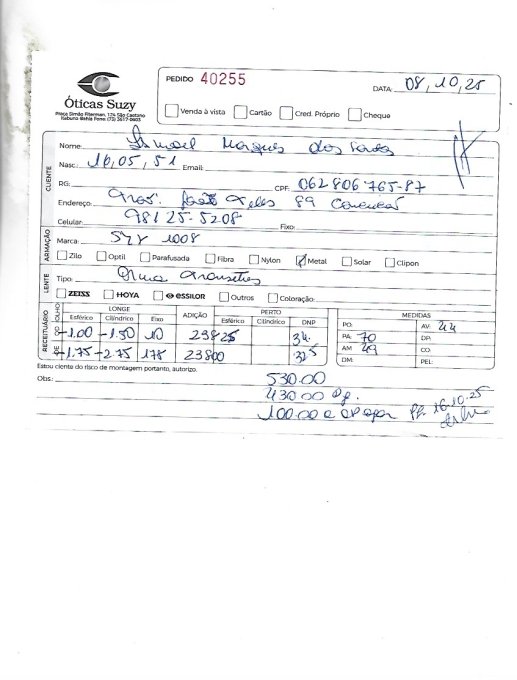 PEDIDO 40255
DATA: 08, 10, 25
Óticas Suzy
Praça Simão Fiterman, 174 São Caetano
Itabuna Bahia Fone: (73) 3617-0403
Venda à vista Cartão Cred. Próprio Cheque
CLIENTE
Nome: Ismael Marques dos Santos
Nasc.: 16, 05, 51 Email:
RG: CPF: 062806765-87
Endereço: 89
Celular: 98125-5208 Fixo:
ARMAÇÃO
Marca: 1008
Zilo Optil Parafusada Fibra Nylon Metal Solar Clipon
LENTE
Tipo:
ZEISS HOYA essilor Outros Coloração:
RECEITUÁRIO
OLHO LONGE ADIÇÃO PERTO MEDIDAS
Esférico Cilíndrico Eixo Esférico Cilíndrico DNP
OD -1.00 -1.50 10 34
OE -1.75 -2.75 175
PO: AV: 44
PA: 70 DP:
AM: 49 CO:
DM: PEL:
Estou ciente do risco de montagem portanto, autorizo.
Obs.: 530.00
430.00 Pg.
100.00 16.10.25